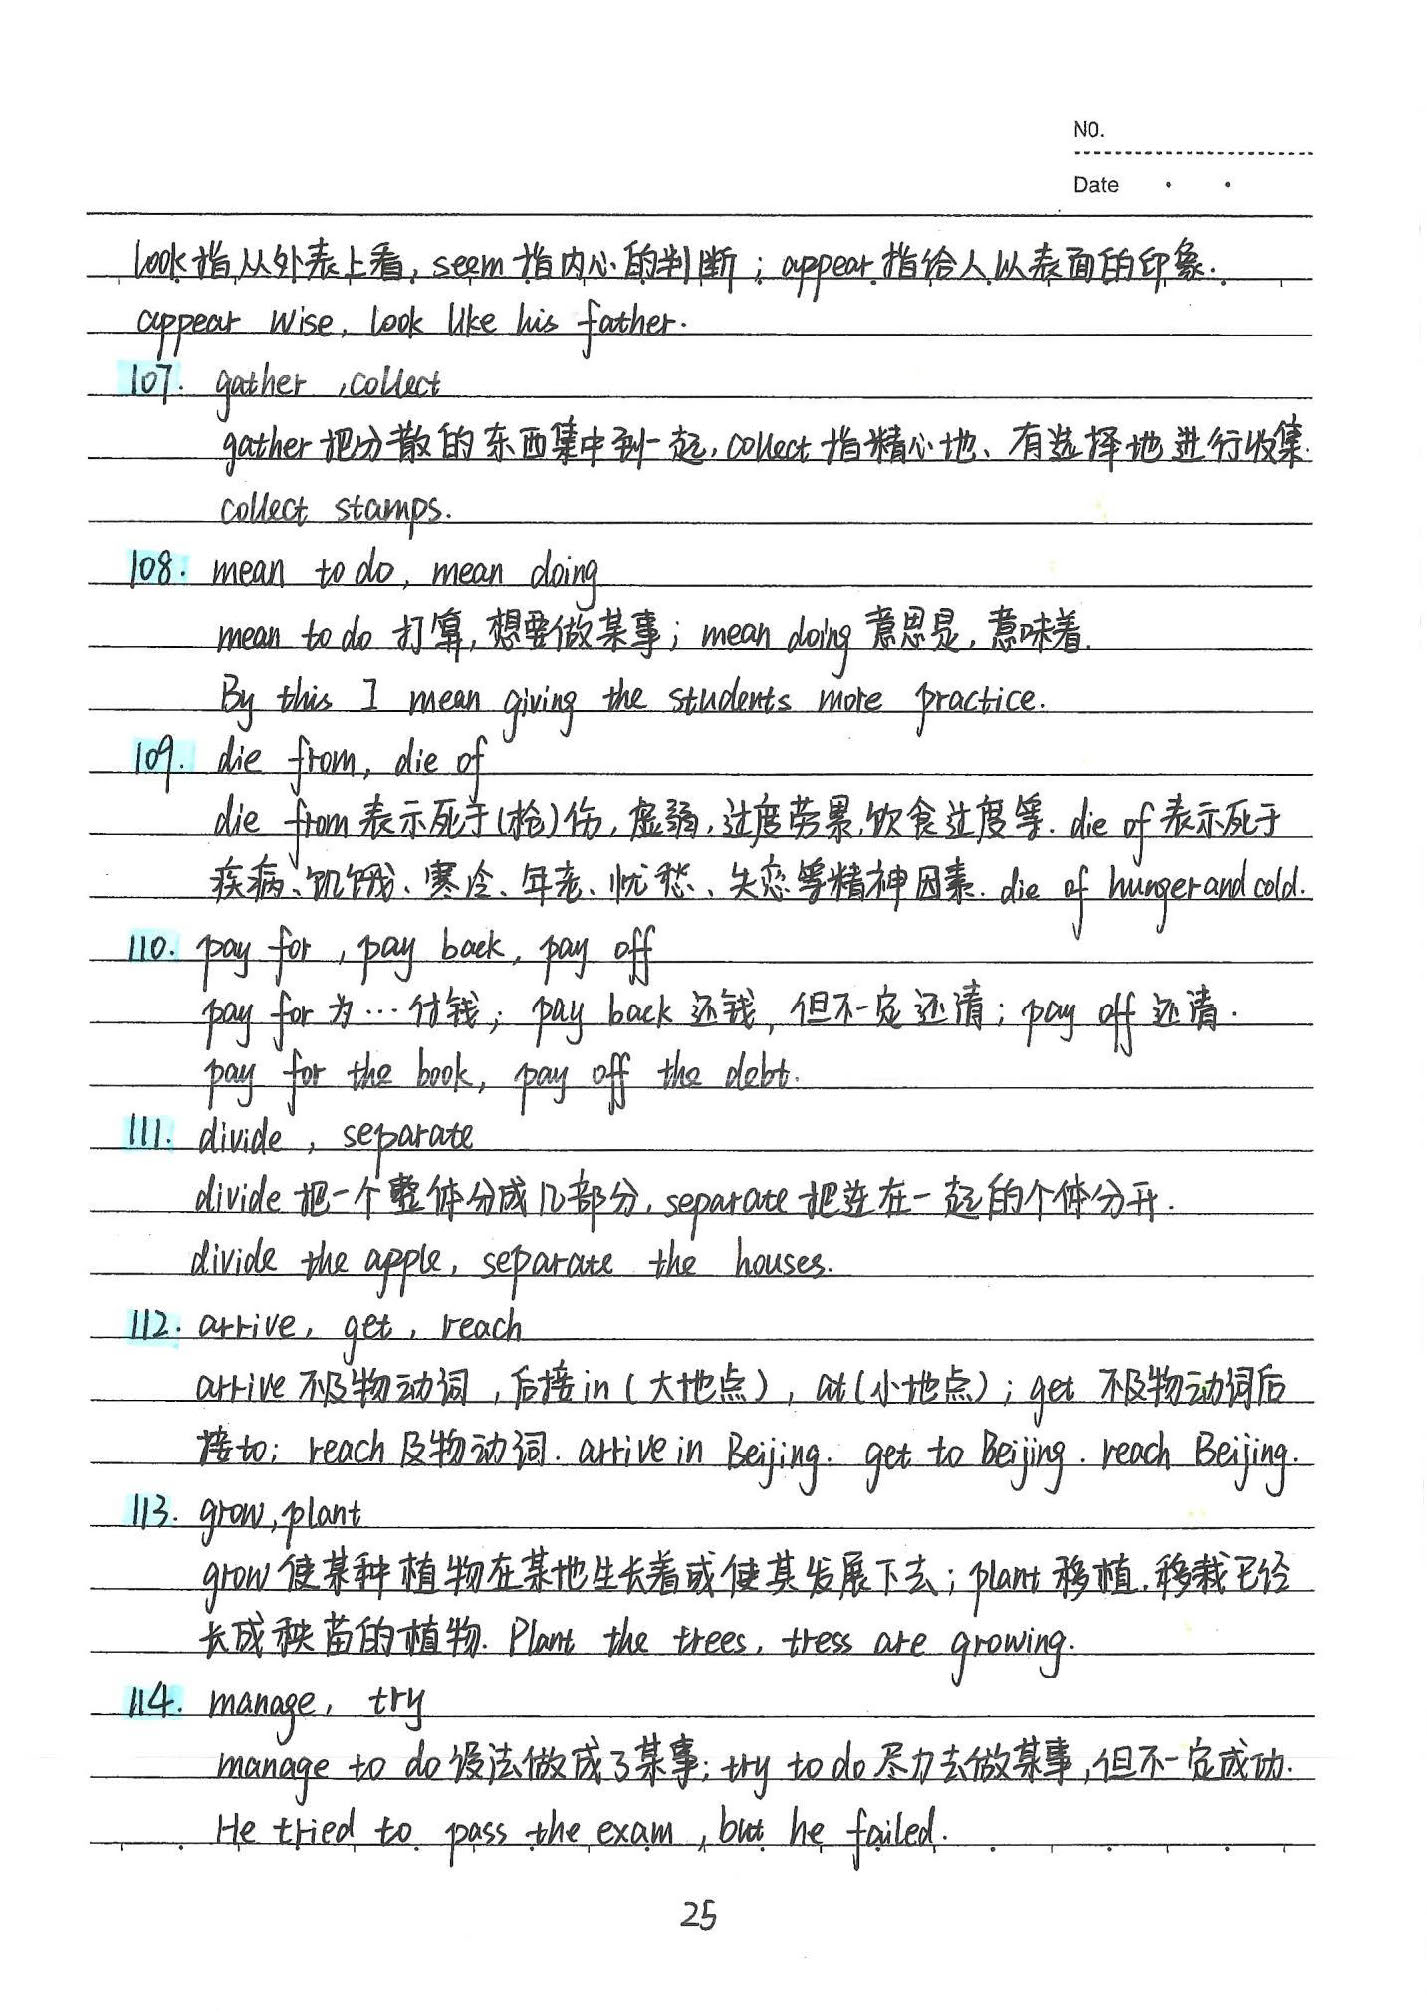 NO.
Date
look指从外表上看，seem指内心的判断；appear指给人以表面的印象.
appear wise, look like his father.
107. gather, collect
gather把分散的东西集中到一起，collect指精心地、有选择地进行收集.
collect stamps.
108. mean to do, mean doing
mean to do 打算，想要做某事；mean doing 意思是，意味着.
By this I mean giving the students more practice.
109. die from, die of
die from表示死于(枪)伤，虚弱，过度劳累，饮食过度等. die of 表示死于
疾病、饥饿、寒冷、年老、忧愁、失恋等精神因素. die of hunger and cold.
110. pay for, pay back, pay off
pay for 为…付钱；pay back 还钱，但不一定还清；pay off 还清.
pay for the book, pay off the debt.
111. divide, separate
divide 把一个整体分成几部分，separate 把连在一起的个体分开.
divide the apple, separate the houses.
112. arrive, get, reach
arrive 不及物动词，后接in(大地点)，at(小地点)；get 不及物动词后
接to；reach 及物动词. arrive in Beijing. get to Beijing. reach Beijing.
113. grow, plant
grow 使某种植物在某地生长着或使其发展下去；plant 移植，移栽已经
长成秧苗的植物. Plant the trees, tress are growing.
114. manage, try
manage to do 设法做成了某事；try to do 尽力去做某事，但不一定成功.
He tried to pass the exam, but he failed.
25